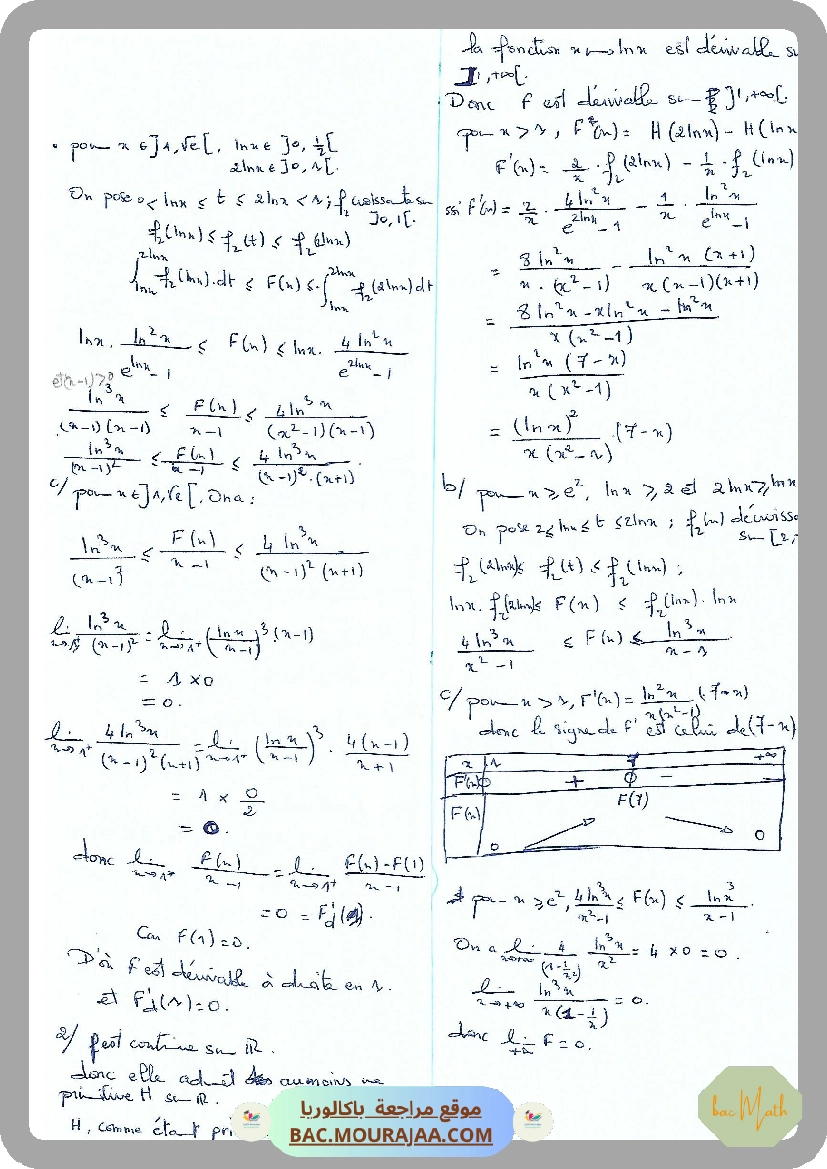 • pour x ∈ ]1,√e[, lnx ∈ ]0, 1/2[
2lnx ∈ ]0,1[.
On pose 0 < lnx ≤ t ≤ 2lnx < 1 ; f₂ croissante sur ]0,1[.
f₂(lnx) ≤ f₂(t) ≤ f₂(2lnx)
∫_{lnx}^{2lnx} f₂(lnx).dt ≤ F(x) ≤ ∫_{lnx}^{2lnx} f₂(2lnx)dt
lnx. ln²x/(e^{lnx}-1) ≤ F(x) ≤ lnx. 4ln²x/(e^{2lnx}-1)
et (x-1)>0
ln³x/((x-1)(x-1)) ≤ F(x)/(x-1) ≤ 4ln³x/((x²-1)(x-1))
ln³x/(x-1)² ≤ F(x)/(x-1) ≤ 4ln³x/((x-1)².(x+1)).
c/ pour x ∈ ]1,√e[, On a :
ln³x/(x-1)² ≤ F(x)/(x-1) ≤ 4ln³x/((x-1)²(x+1))
lim_{x→1⁺} ln³x/(x-1)² = lim_{x→1⁺} (lnx/(x-1))³.(x-1)
= 1 x 0
= 0.
lim_{x→1⁺} 4ln³x/((x-1)²(x+1)) = lim_{x→1⁺} (lnx/(x-1))³ . 4(x-1)/(x+1)
= 1 x 0/2
= 0.
donc lim_{x→1⁺} F(x)/(x-1) = lim_{x→1⁺} (F(x)-F(1))/(x-1)
= 0 = F'd(1).
Car F(1)=0.
D'où F est dérivable à droite en 1.
et F'd(1)=0.
2/ f est continue sur ℝ.
donc elle admet au moins une
primitive H sur ℝ.
H, comme étant pri
la fonction x ↦ lnx est dérivable su
]1,+∞[.
Donc F est dérivable sur ]1,+∞[.
pour x > 1, F'(x) = H(2lnx) - H(lnx
F'(x) = 2/x . f₂(2lnx) - 1/x . f₂(lnx)
ssi F'(x) = 2/x . 4ln²x/(e^{2lnx}-1) - 1/x . ln²x/(e^{lnx}-1)
= 8ln²x/(x.(x²-1)) - ln²x(x+1)/(x(x-1)(x+1))
= (8ln²x - xln²x - ln²x)/(x(x²-1))
= ln²x(7-x)/(x(x²-1))
= (lnx)²/(x(x²-1)) .(7-x)
b/ pour x ≥ e², lnx ≥ 2 et 2lnx ≥ lnx
On pose 2 ≤ lnx ≤ t ≤ 2lnx ; f₂(x) décroissa
sur [2,
f₂(2lnx) ≤ f₂(t) ≤ f₂(lnx) ;
lnx.f₂(2lnx) ≤ F(x) ≤ f₂(lnx).lnx
4ln³x/(x²-1) ≤ F(x) ≤ ln³x/(x-1).
c/ pour x > 1, F'(x) = ln²x/(x(x²-1)) .(7-x)
donc le signe de F' est celui de (7-x)
x 1 7 +∞
F'(x) 0 + 0 -
F(x) 0 F(7) 0
pour x ≥ e², 4ln³x/(x²-1) ≤ F(x) ≤ lnx³/(x-1).
On a lim_{x→+∞} 4/(1-1/x²) ln³x/x² = 4 x 0 = 0.
lim_{x→+∞} ln³x/(x(1-1/x)) = 0.
donc lim_{+∞} F = 0.
موقع مراجعة باكالوريا
BAC.MOURAJAA.COM
bac Math